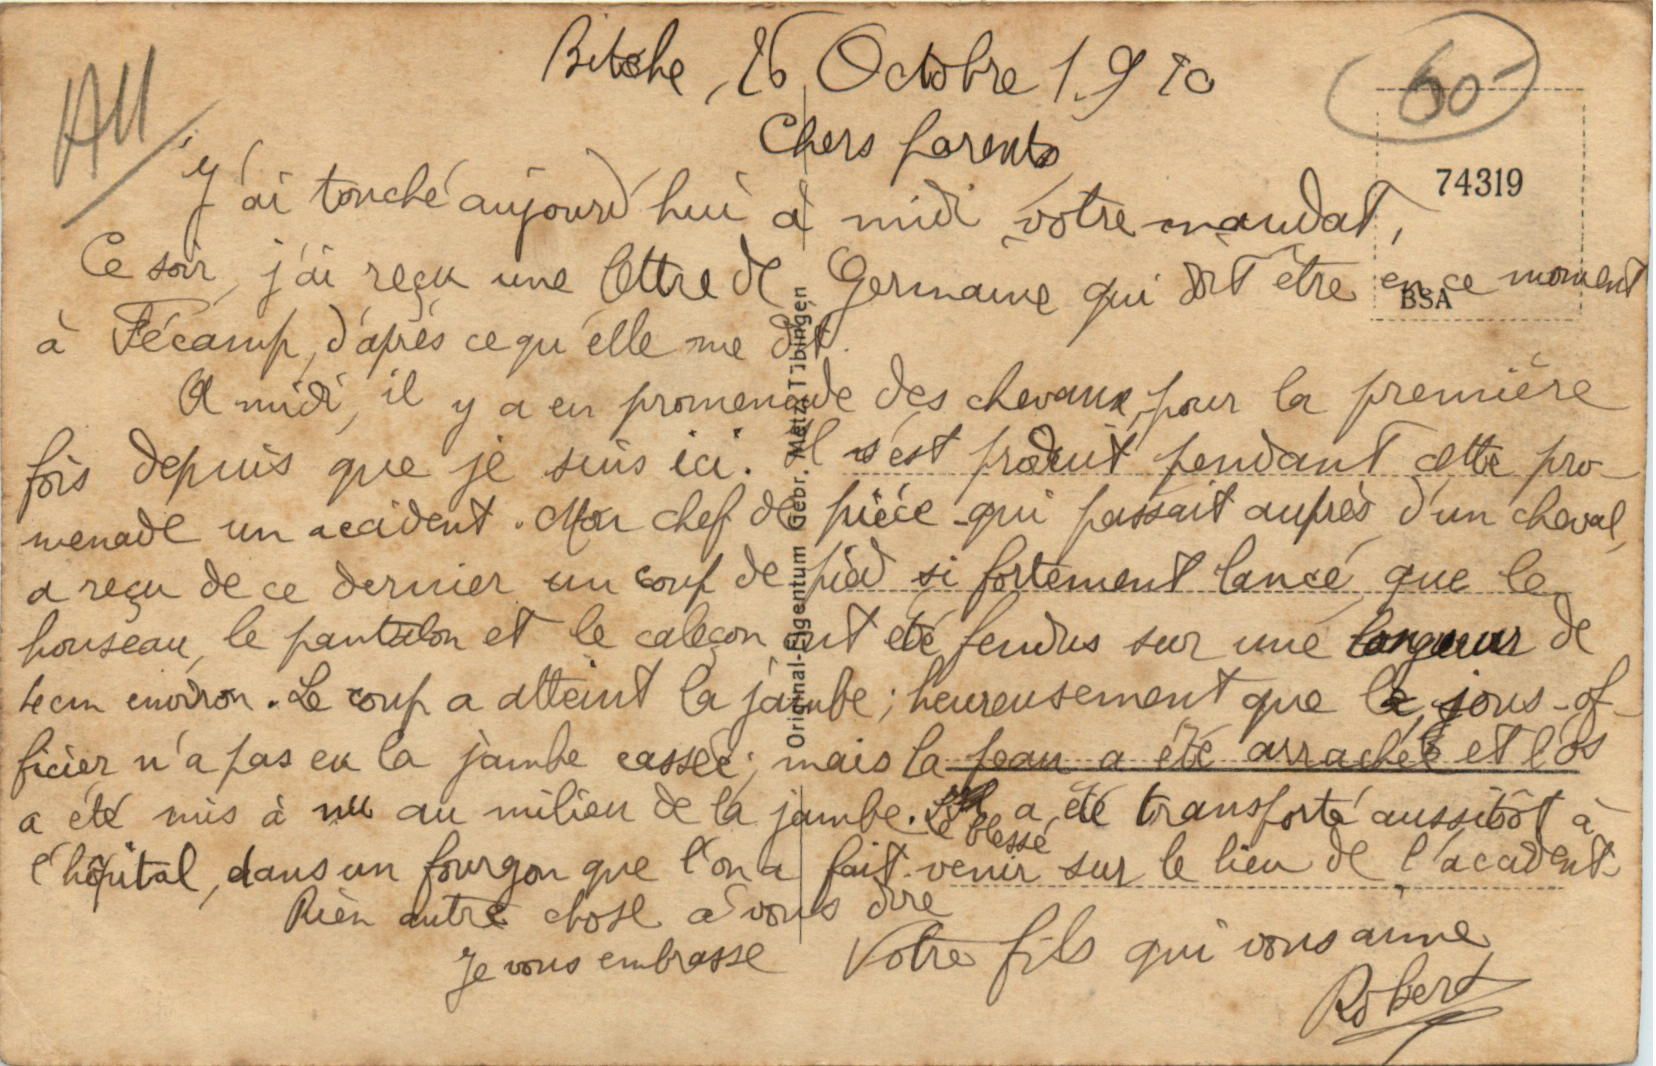 Bitche, 26 Octobre 1920
All
60-
Chers parents
74319
J'ai touché aujourd'hui à midi votre mandat,
Ce soir, j'ai reçu une lettre de Germaine qui doit être en ce moment
BSA
à Fécamp, d'après ce qu'elle me dit.
A midi, il y a eu promenade des chevaux, pour la première
fois depuis que je suis ici. Il s'est produit pendant cette pro-
menade un accident. Mon chef de pièce qui passait auprès d'un cheval,
a reçu de ce dernier un coup de pied si fortement lancé que le
houseau, le pantalon et le caleçon ont été fendus sur une longueur de
cm environ. Le coup a atteint la jambe; heureusement que le sous-of-
ficier n'a pas eu la jambe cassée; mais la peau a été arrachée et l'os
a été mis à nu au milieu de la jambe. Le blessé a été transporté aussitôt à
l'hôpital, dans un fourgon que l'on a fait venir sur le lieu de l'accident.
Rien autre chose à vous dire
Je vous embrasse Votre fils qui vous aime
Robert
Original-Eigentum Gebr. Metz, Tübingen